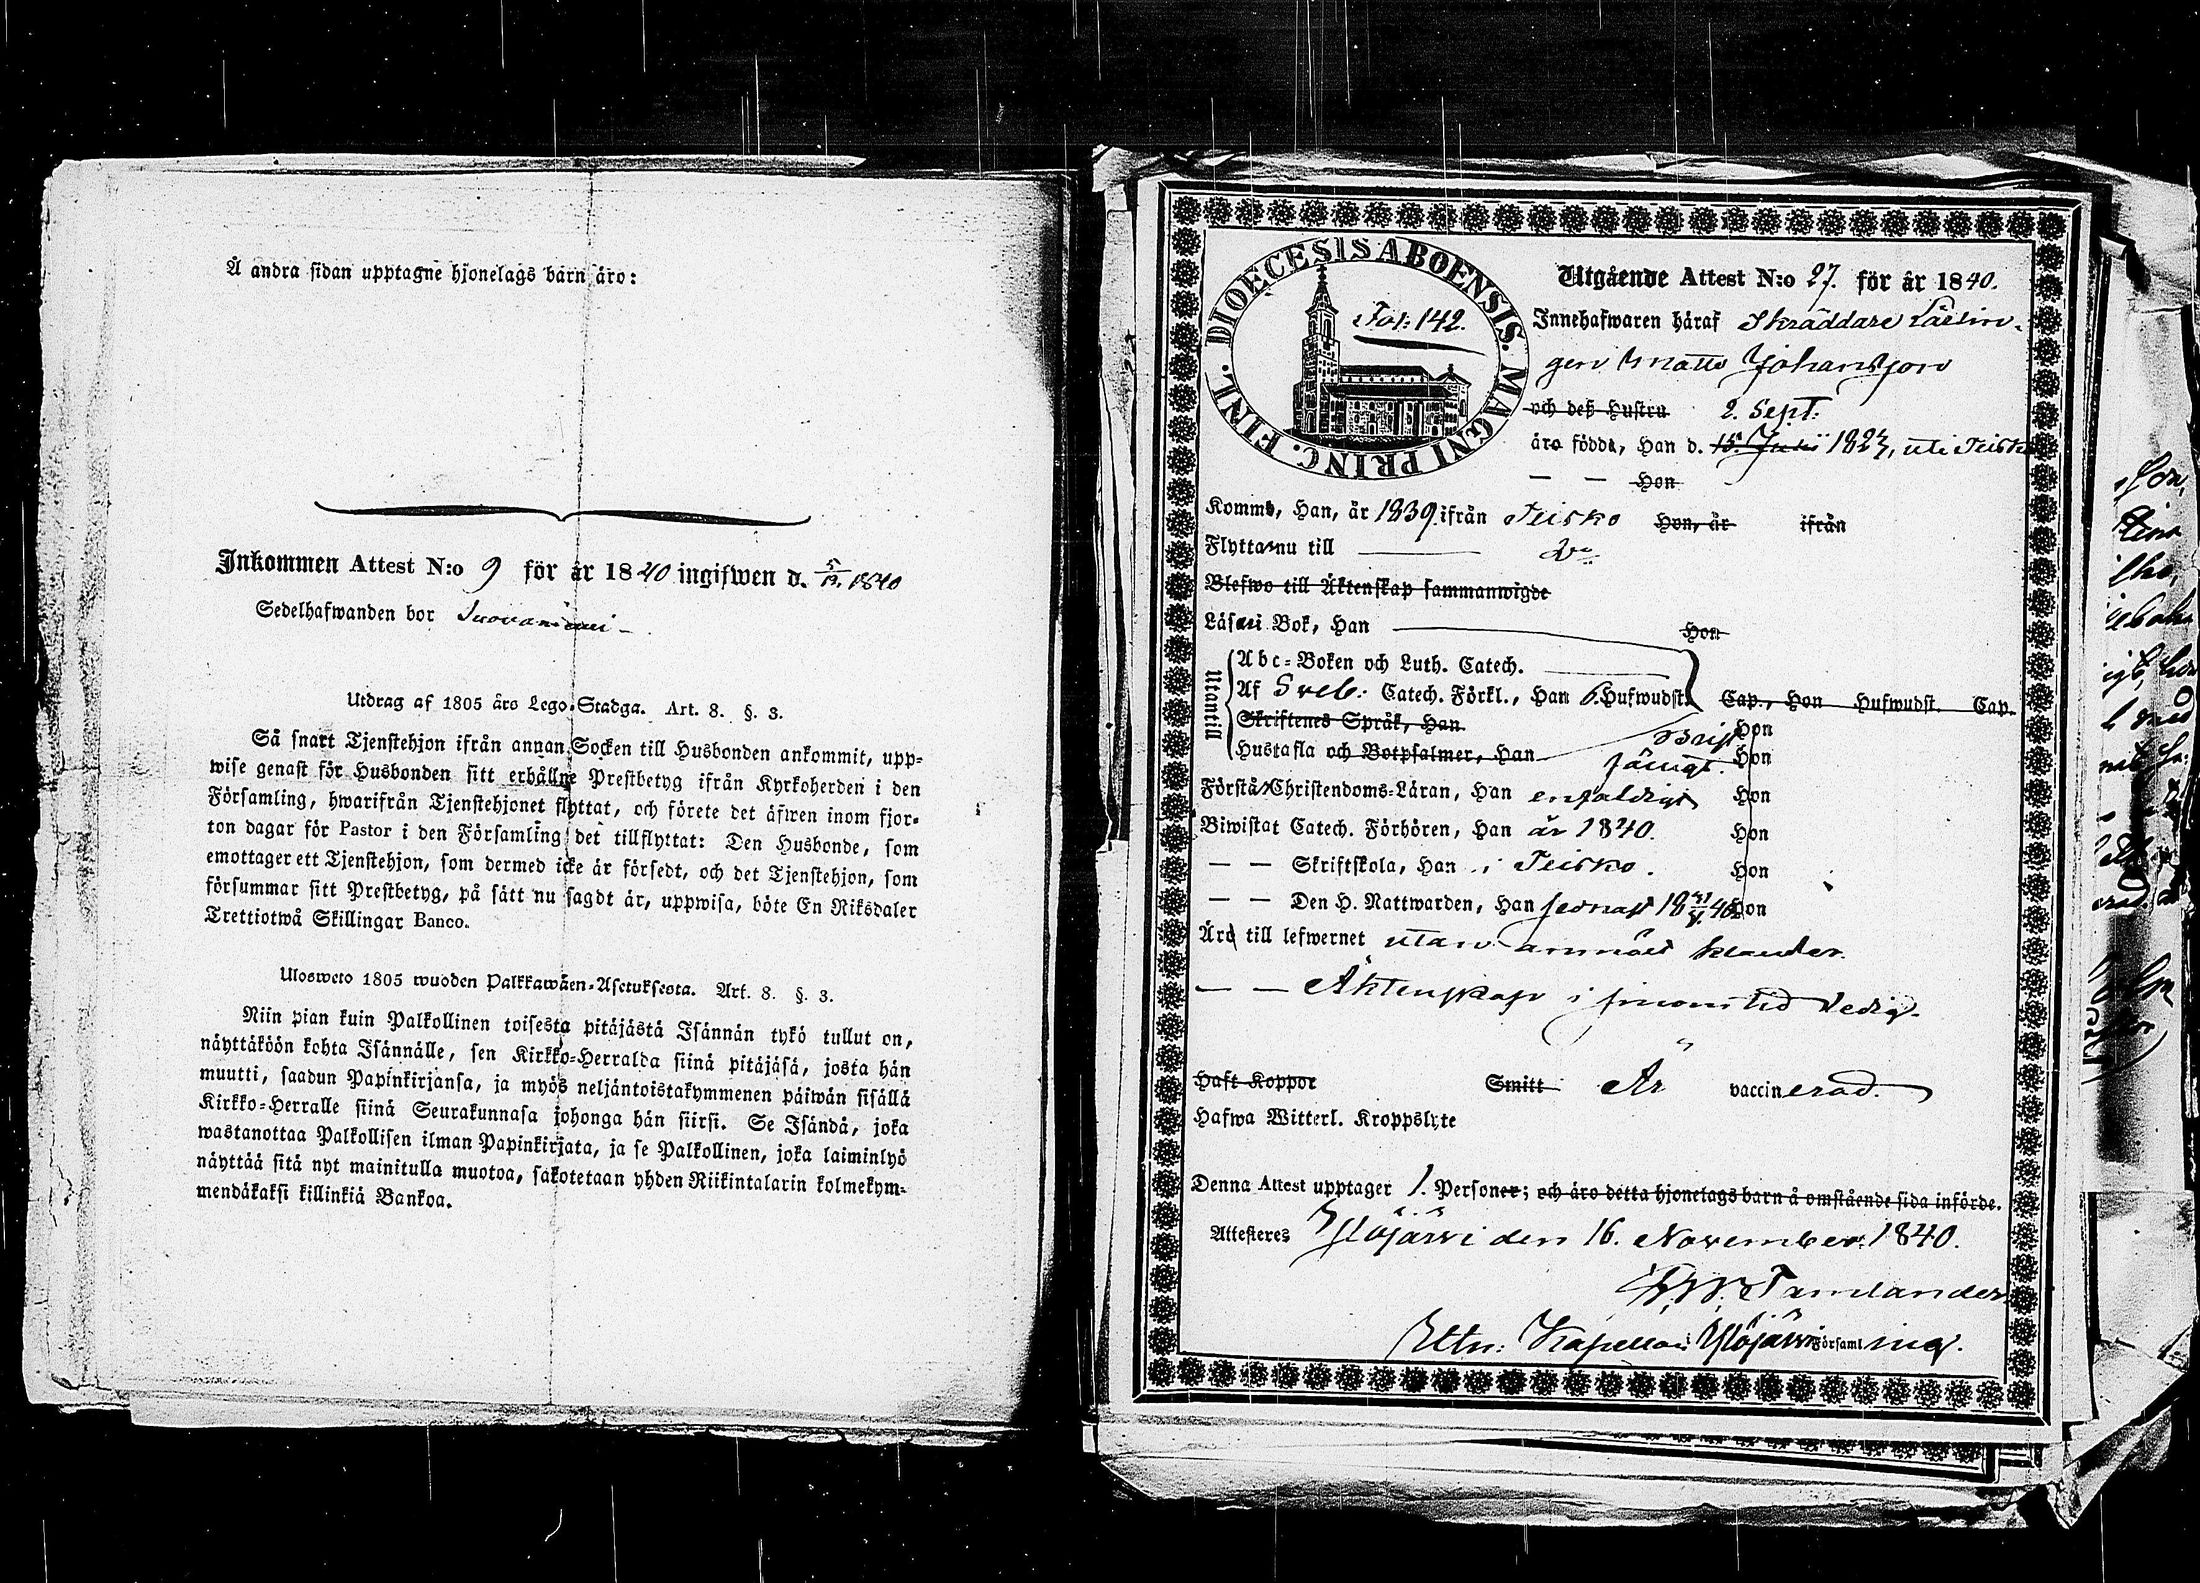 Å andra sidan upptagne hjonelags barn äro:
Inkommen Attest N:o 9 för år 1840 ingifwen d. 5/12 1840
Sedelhafwanden bor Suovaniemi
Utdrag af 1805 års Lego-Stadga. Art. 8. §. 3.
Så snart Tjenstehjon ifrån annan Socken till Husbonden ankommit, upp=
wise genast för Husbonden sitt erhållne Prestbetyg ifrån Kyrkoherden i den
Församling, hwarifrån Tjenstehjonet flyttat, och förete det äfwen inom fjor=
ton dagar för Pastor i den Församling det tillflyttat: Den Husbonde, som
emottager ett Tjenstehjon, som dermed icke är försedt, och det Tjenstehjon, som
försummar sitt Prestbetyg, på sätt nu sagdt är, uppwisa, böte En Riksdaler
Trettiotwå Skillingar Banco.
Ulosweto 1805 wuoden Palkkawäen=Asetuksesta. Art. 8. §. 3.
Niin pian kuin Palkollinen toisesta pitäjästä Isännän tykö tullut on,
näyttäköön kohta Isännälle, sen Kirkko=Herralda siinä pitäjäsä, josta hän
muutti, saadun Papinkirjansa, ja myös neljäntoistakymmenen päiwän sisällä
Kirkko=Herralle siinä Seurakunnasa johonga hän siirsi. Se Isändä, joka
wastanottaa Palkollisen ilman Papinkirjata, ja se Palkollinen, joka laiminlyö
näyttää sitä nyt mainitulla muotoa, sakotetaan yhden Riikintalarin kolmekym=
mendäkaksi killinkiä Bankoa.
DIOECESIS ABOENSIS. MAGNI PRINC. FINL.
Fol: 142.
Utgående Attest N:o 27. för år 1840.
Innehafwaren häraf Skräddare Lärlin-
gen Matts Johansson
och deß Hustru 2. Sept:
äro födde, Han d. 15. Juli 1823, uti Teisko
— — Hon
Komme, Han, år 1839 ifrån Teisko Hon, år ifrån
Flytta nu till
Blefwo till Äktenskap sammanwigde
Läsa i Bok, Han Hon
Utantill
Abc=Boken och Luth. Catech.
Af Sveb: Catech. Förkl., Han 6. Hufwudst. Cap., Hon Hufwudst. Cap.
Skriftenes Språk, Han Hon
Hustafla och Botpsalmer, Han Hon
Förstå Christendoms=Läran, Han enfaldigt Hon
Biwistat Catech. Förhören, Han år 1840. Hon
— — Skriftskola, Han i Teisko. Hon
— — Den H. Nattwarden, Han sednast 18 40 Hon
Äro till lefwernet utan anmäld klander.
— — Äktenskap i sinom tid Ledig.
Haft Koppor Smitt Är vaccinerad.
Hafwa Witterl. Kroppslyte
Denna Attest upptager 1. Personer; och äro detta hjonelags barn å omstående sida införde.
Attesteres Ylöjärvi den 16. November 1840.
Tamlander
Kapellan i Ylöjärvi Församling.